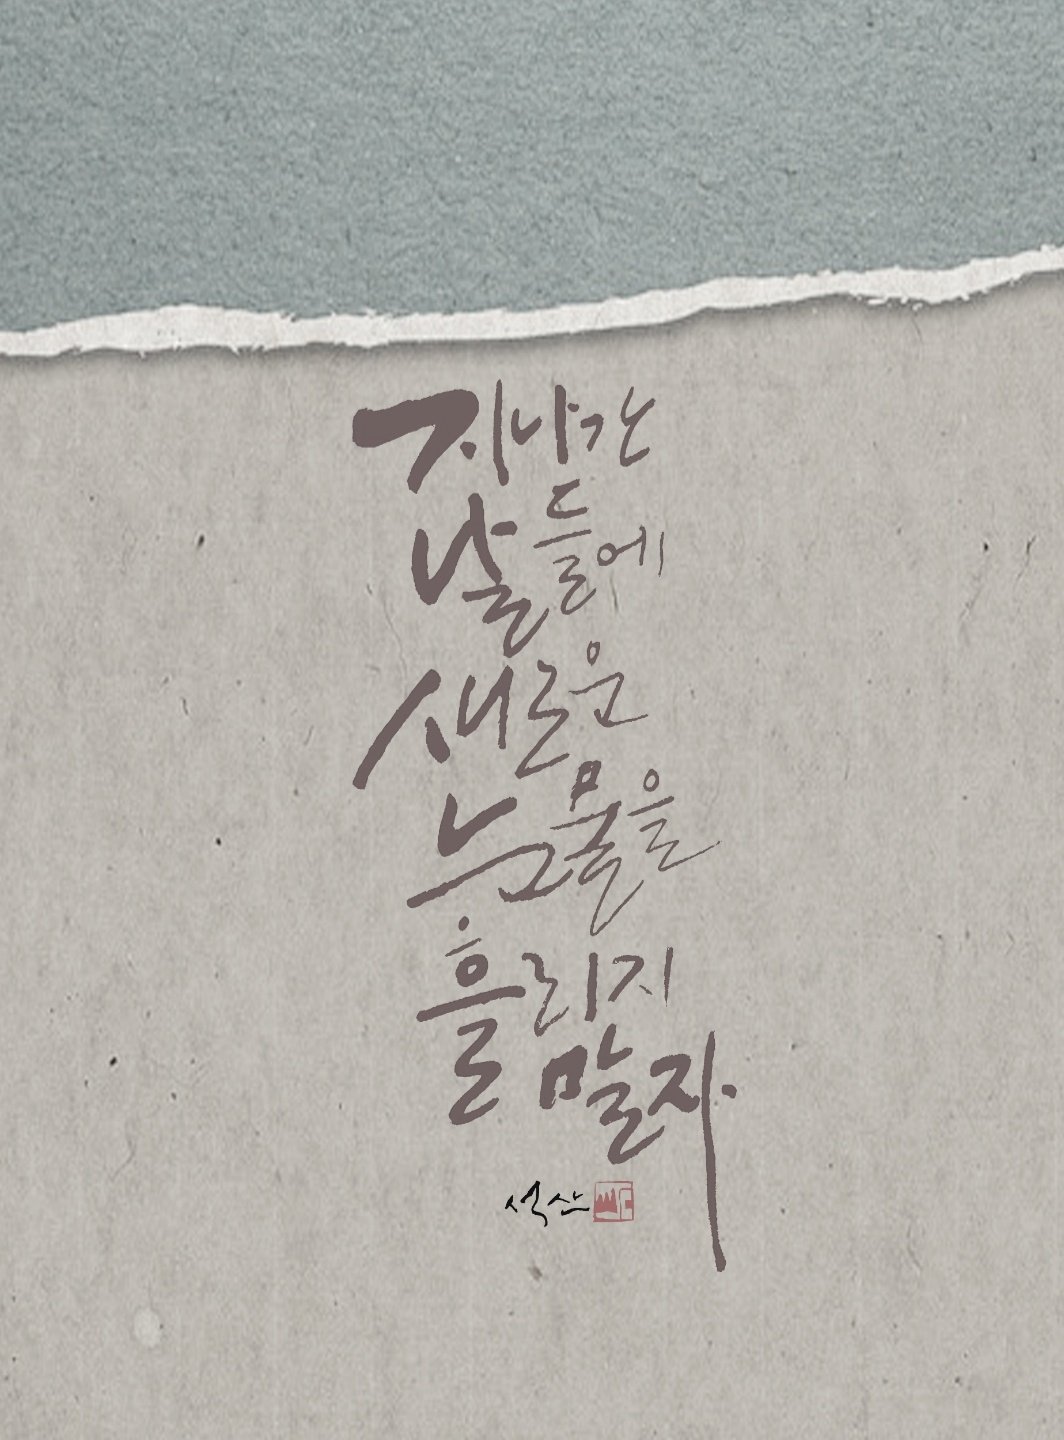 지나간
날들에
새로운
눈물을
흘리지
말자
석산